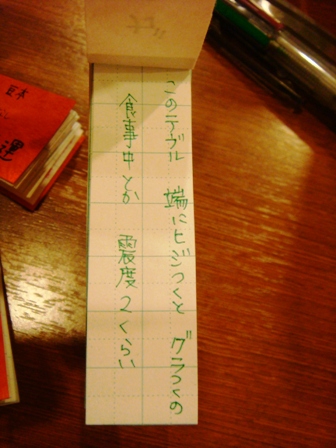 このテーブル 端にヒジつくと グラつくの
食事中とか 震度2くらい
日本
運